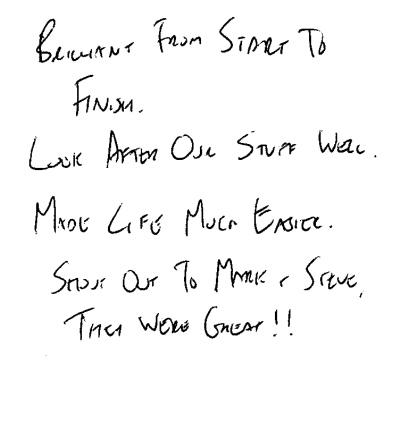 Brilliant From Start To
Finish.
Look After Our Stuff Well.
Made Life Much Easier.
Shout Out To Mark & Steve,
They Were Great!!